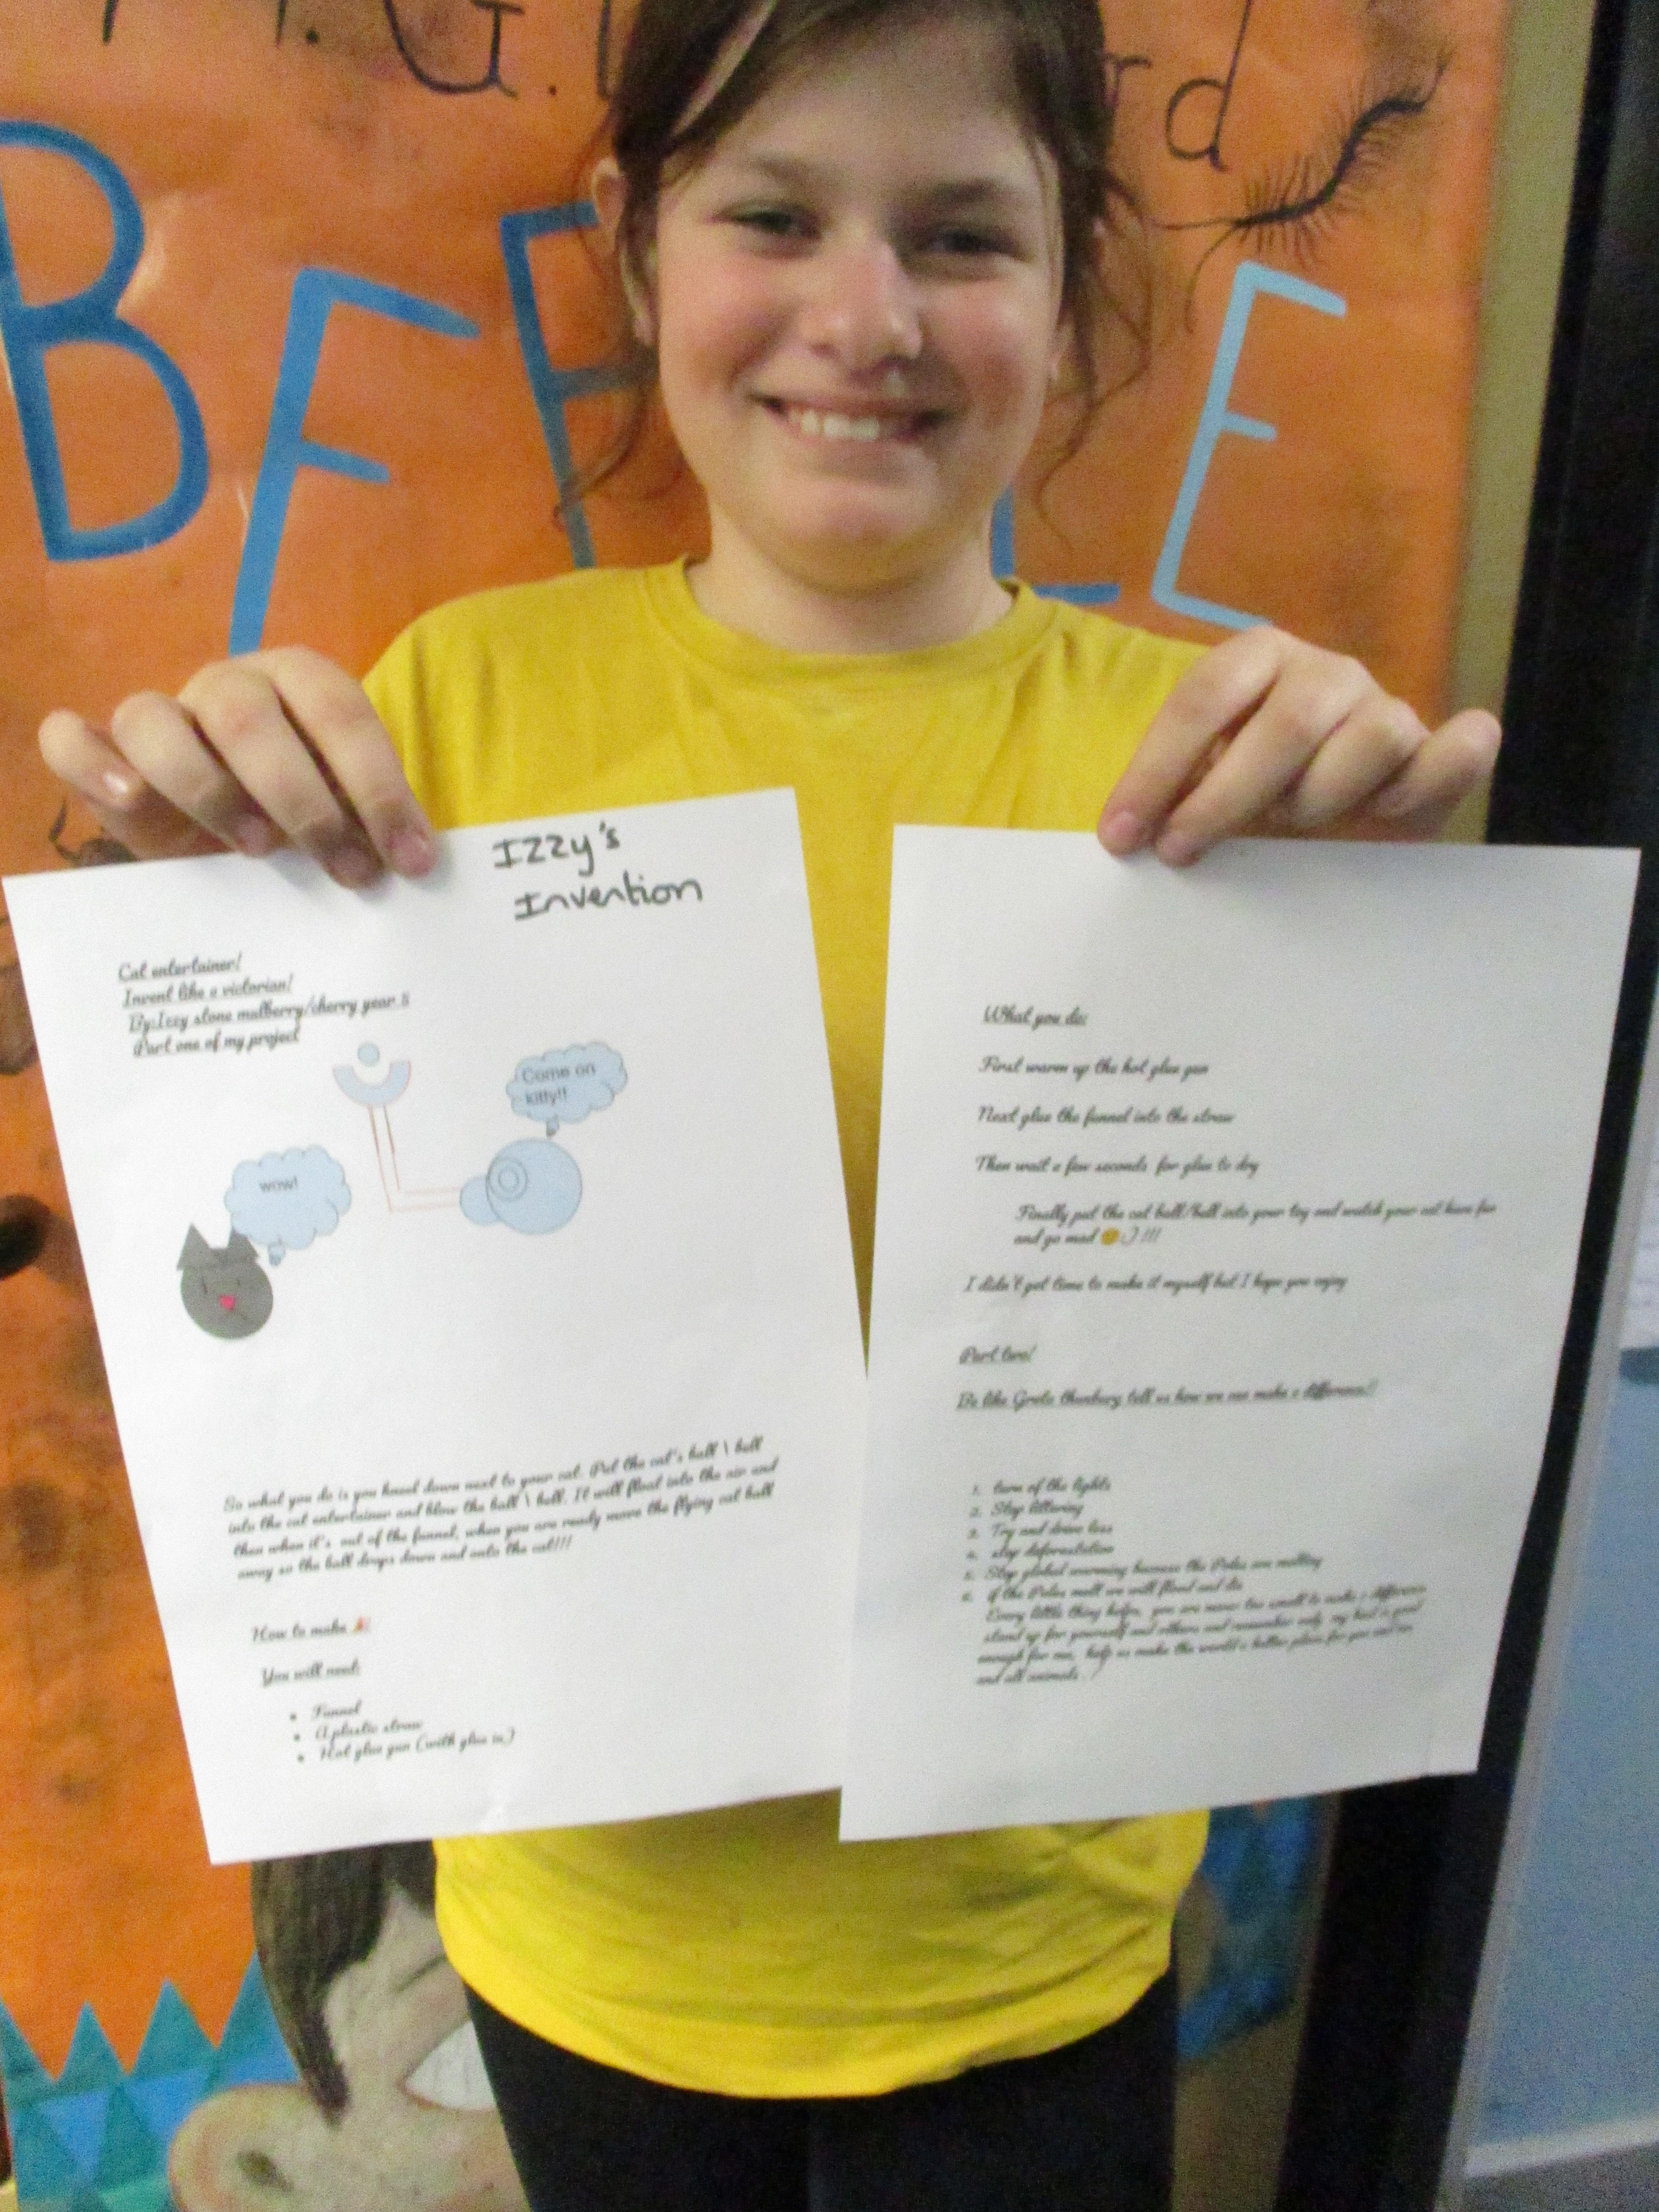 G.
rd
B F
F
L E
Izzy's
Invention
Cat entertainer!
Invent like a victorian!
By:Izzy stone mulberry/cherry year 5
Part one of my project
Come on
kitty!!
wow!
So what you do is you hand down next to your cat. Put the cat's ball \ bell
into the cat entertainer and blow the ball \ bell. It will float into the air and
then when it's out of the funnel, when you are ready move the flying cat ball
away so the ball drops down and onto the cat!!!
How to make 🎉
You will need:
• Funnel
• A plastic straw
• Hot glue gun (with glue in)
What you do:
First warm up the hot glue gun
Next glue the funnel into the straw
Then wait a few seconds for glue to dry
Finally put the cat ball/bell into your toy and watch your cat have fun
and go mad !!!
I didn't get time to make it myself but I hope you enjoy
Part two!
Be like Greta thunburg tell us how we can make a difference!!
1. turn of the lights
2. Stop littering
3. Try and drive less
4. stop deforestation
5. Stop global warming because the Poles are melting
6. if the Poles melt we will flood and die
Every little thing helps, you are never too small to make a difference
stand up for yourself and others and remember only my best is good
enough for me, help us make the world a better place for you and me
and all animals